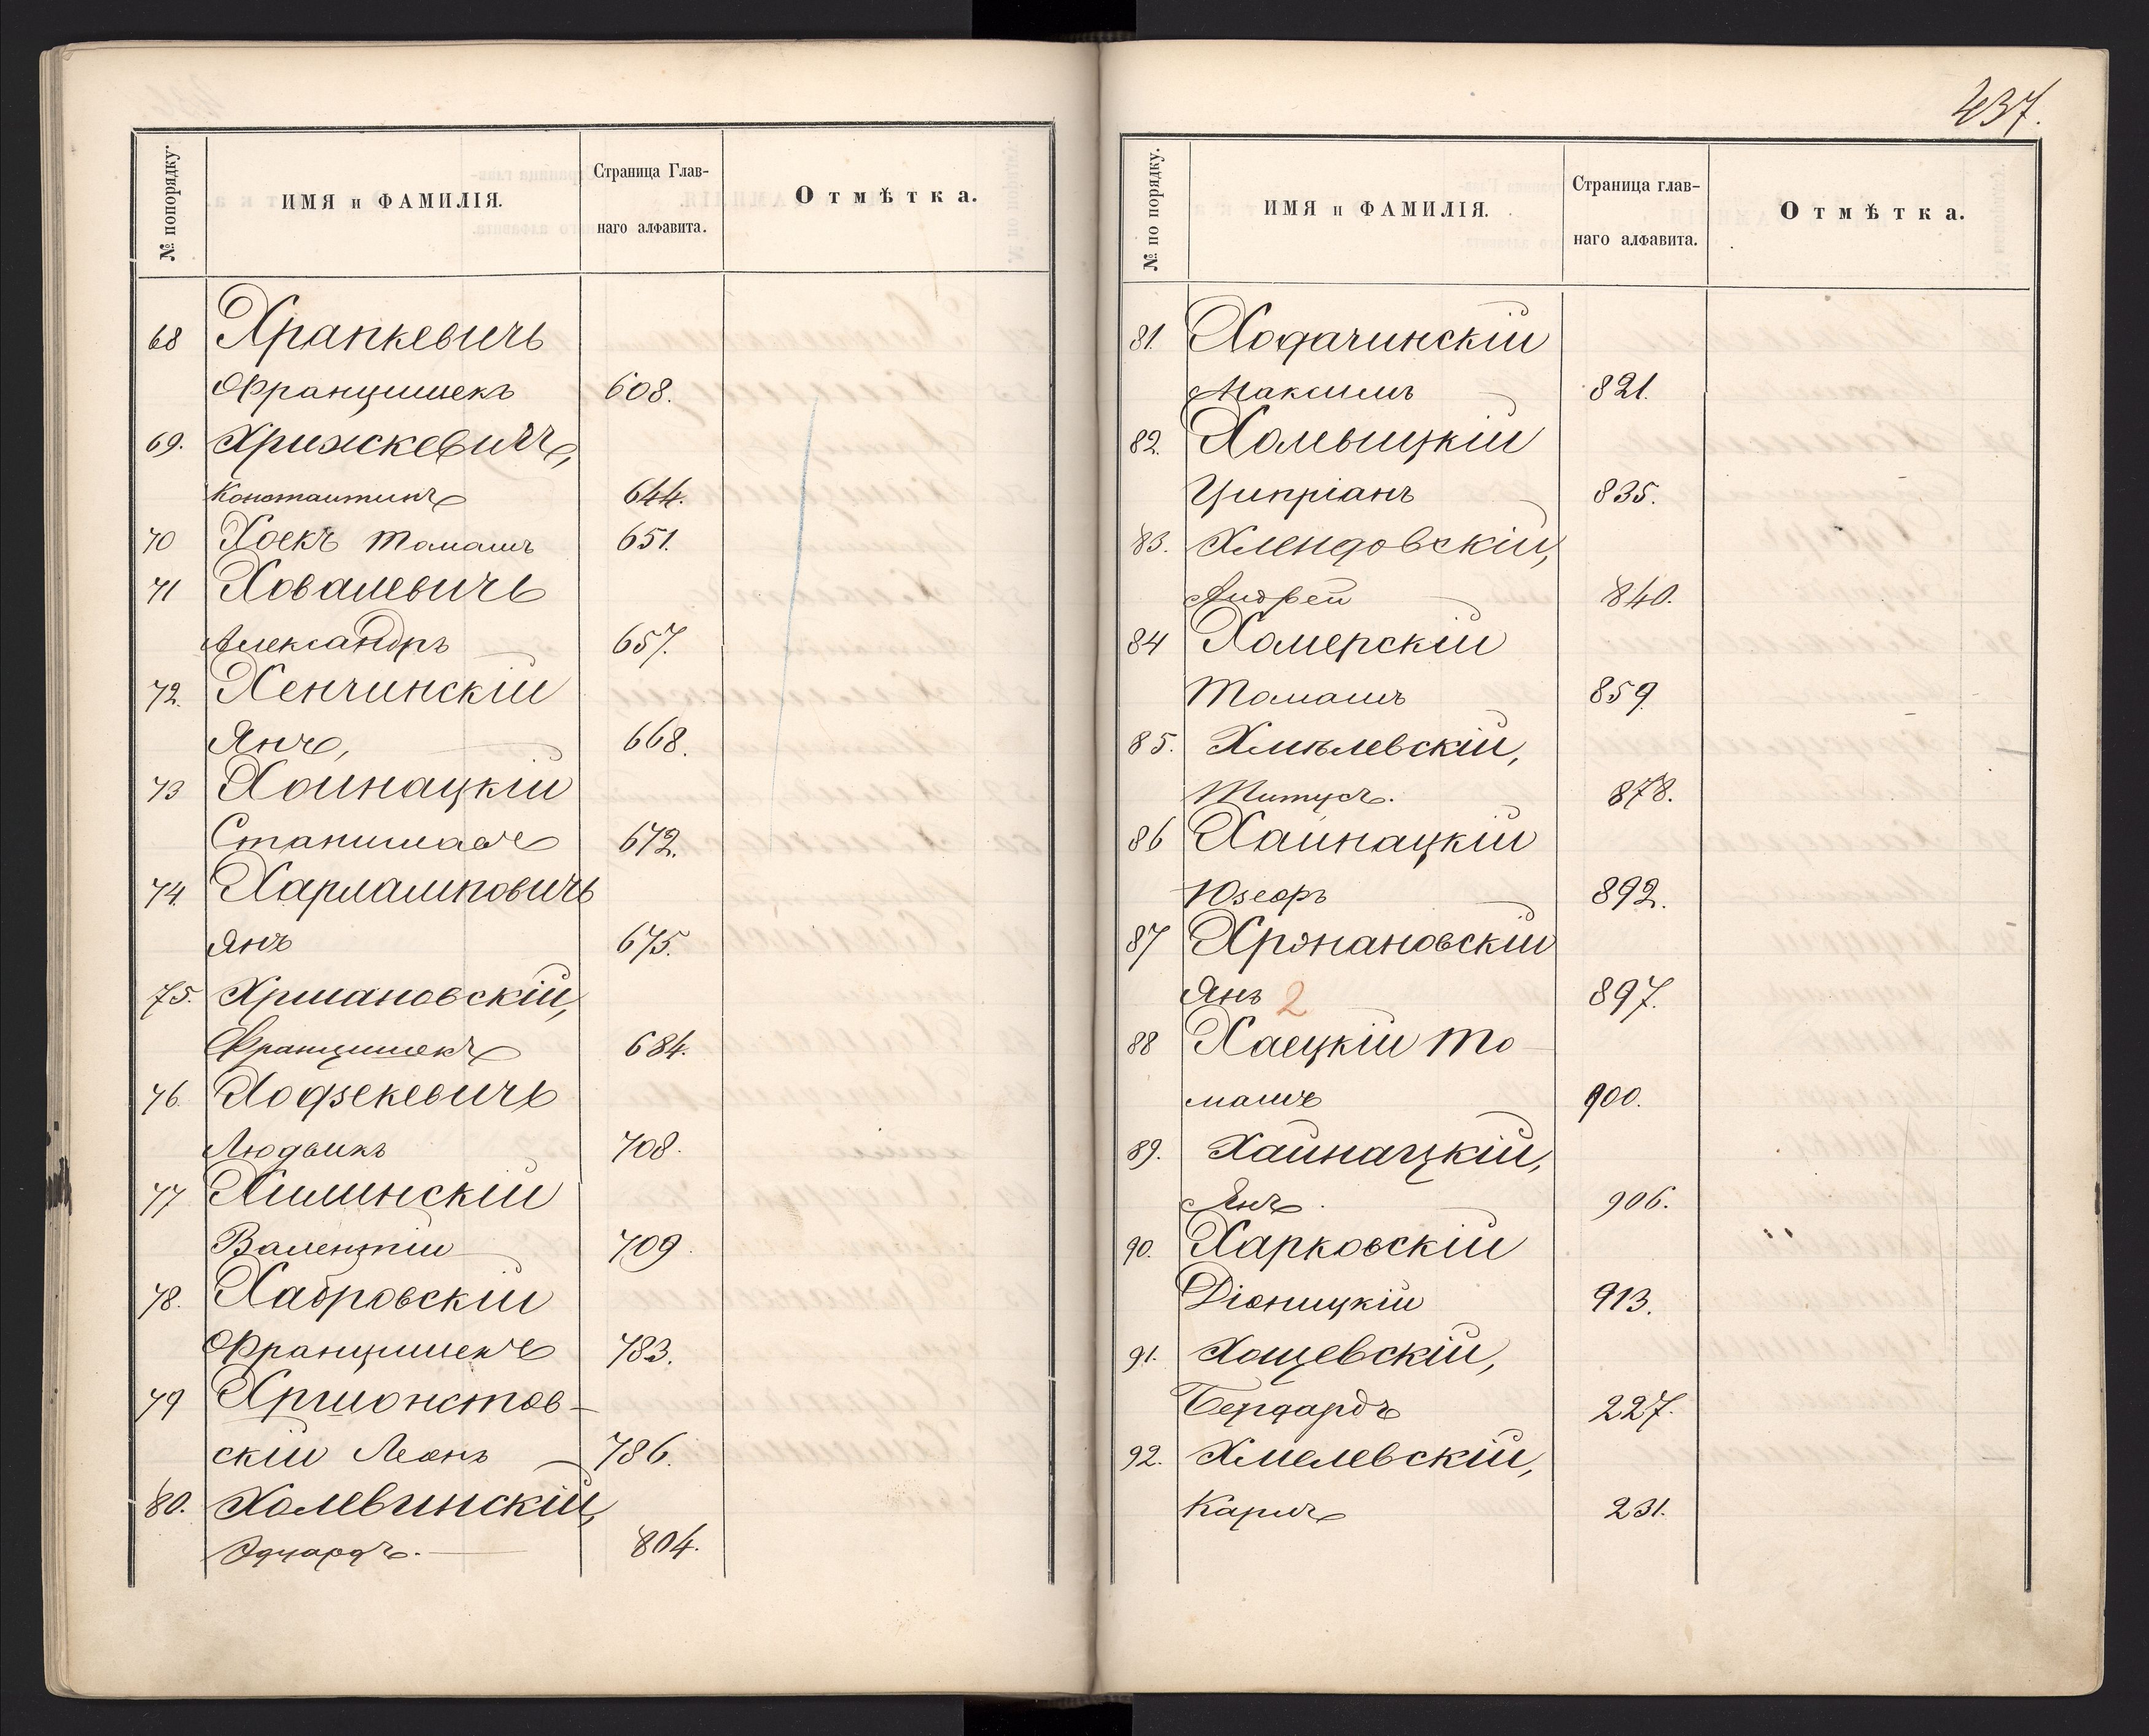 № попорядку.
ИМЯ и ФАМИЛІЯ.
Страница Глав-
наго алфавита.
Отмѣтка.
68 Храпкевичъ
Францишекъ 608.
69. Хрижскевичъ,
Константинъ 644.
70 Хоекъ Томашъ 651.
71 Ховалевичъ
Александръ 657.
72. Хенчинскій
Янъ, 668.
73 Хойнацкій
Станиславъ 672.
74. Харлампповичъ
Янъ 675.
75. Хршановскій,
Францишекъ 684.
76. Ходзекевичъ
Людвикъ 708.
77 Хилинскій
Валентій 709.
78. Хабровскій
Францишекъ 783.
79 Хршонстов-
скій Леонъ 786.
80. Холевинскій,
Эдуардъ. 804.
437.
№ по порядку.
ИМЯ и ФАМИЛІЯ.
Страница глав-
наго алфавита.
Отмѣтка.
81. Ходачинскій
Максимъ 821.
82. Хомыицкій
Ципріанъ 835.
83. Хлендовскій,
Андрей 840.
84 Хомерскій
Томашъ 859
85. Хмѣлевскій,
Титусъ. 878.
86 Хайнацкій
Юзефъ 892.
87 Хрзнановскій
Янъ 2 897.
88 Хаецкій То-
машъ 900.
89. Хайнацкій,
Янъ. 906.
90. Харковскій
Діоницкій 913.
91. Хощевскій,
Бернардъ 227.
92. Хмелевскій,
Карлъ 231.